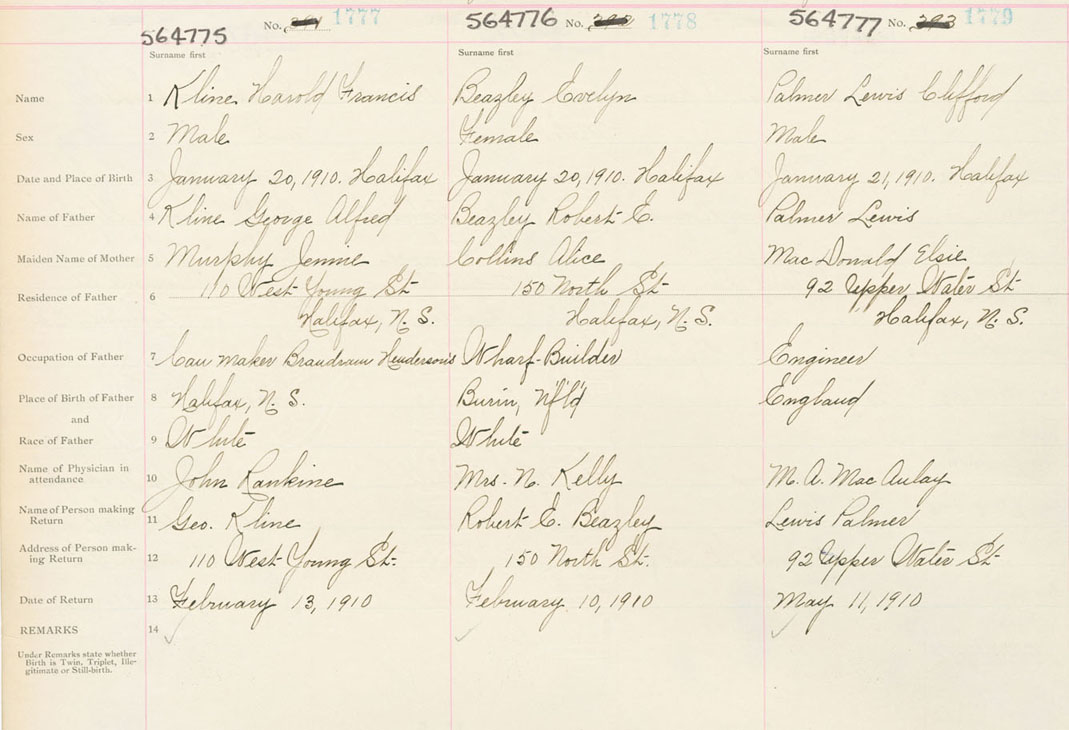 564775 No. 1777 564776 No. 1778 564777 No. 393 1779
Surname first Surname first Surname first
Name 1 Kline Harold Francis Beazley Evelyn Palmer Lewis Clifford
Sex 2 Male Female Male
Date and Place of Birth 3 January 20, 1910. Halifax January 20, 1910. Halifax January 21, 1910. Halifax
Name of Father 4 Kline George Alfred Beazley Robert E. Palmer Lewis
Maiden Name of Mother 5 Murphy Jennie Collins Alice Mac Donald Elsie
Residence of Father 6 110 West Young St 150 North St 92 Upper Water St
Halifax, N. S. Halifax, N. S. Halifax, N. S.
Occupation of Father 7 Can maker Brandram Hendersons Wharf-Builder Engineer
Place of Birth of Father 8 Halifax, N. S. Burin, Nf'l'd England
and
Race of Father 9 White White
Name of Physician in
attendance 10 John Rankine Mrs. N. Kelly M. A. Mac Aulay
Name of Person making
Return 11 Geo. Kline Robert E. Beazley Lewis Palmer
Address of Person mak-
ing Return 12 110 West Young St. 150 North St. 92 Upper Water St
Date of Return 13 February 13, 1910 February 10, 1910 May 11, 1910
REMARKS 14
Under Remarks state whether
Birth is Twin, Triplet, Ille-
gitimate or Still-birth.